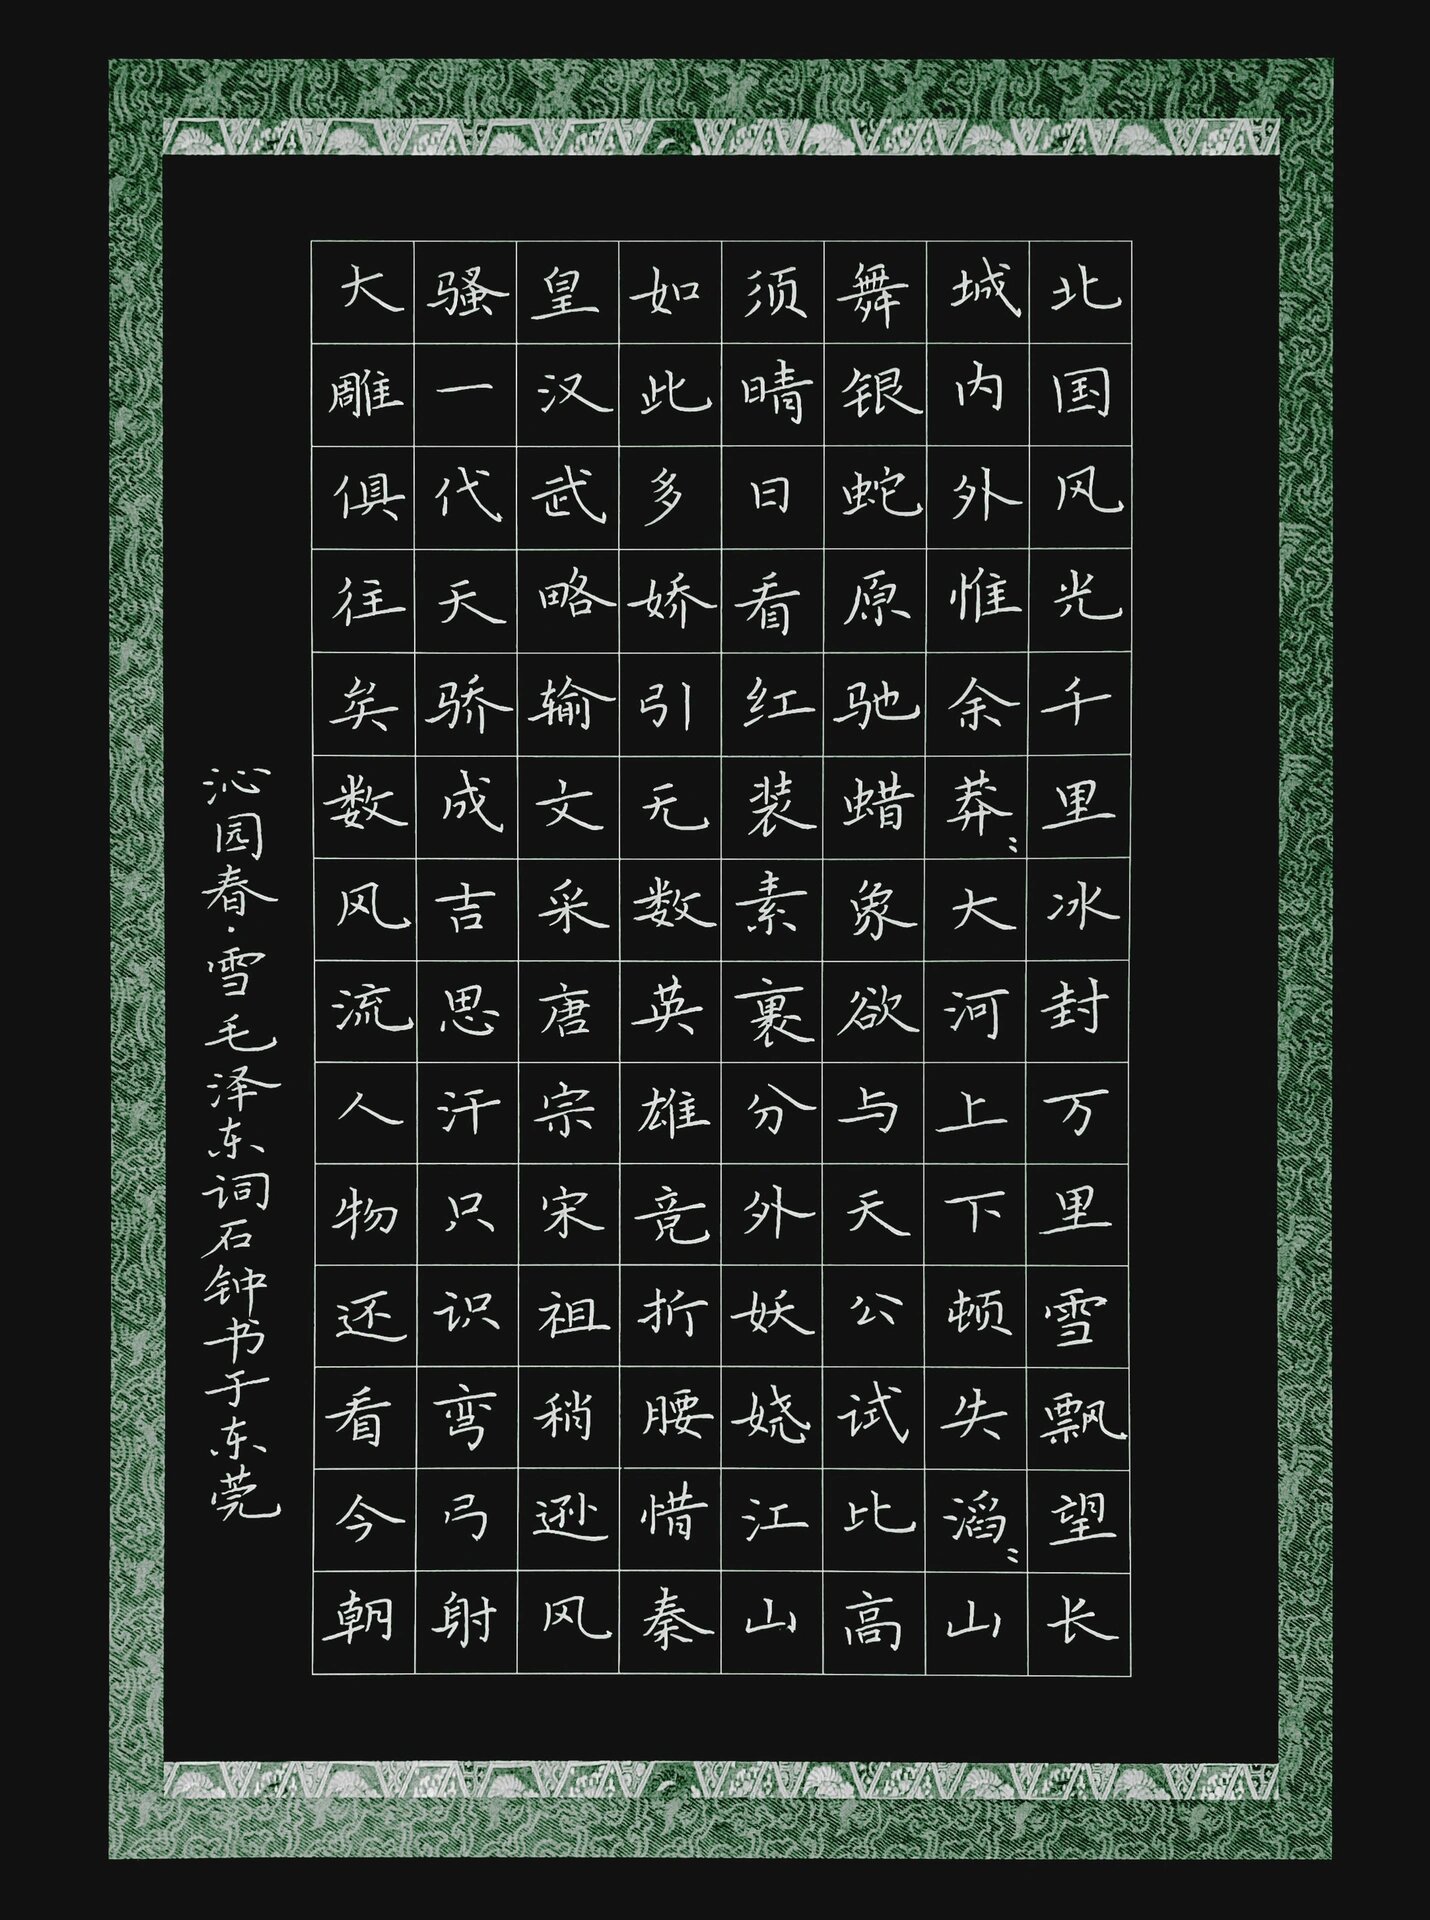 北国风光千里冰封万里雪飘望长
城内外惟余莽〻大河上下顿失滔〻山
舞银蛇原驰蜡象欲与天公试比高
须晴日看红装素裹分外妖娆江山
如此多娇引无数英雄竞折腰惜秦
皇汉武略输文采唐宗宋祖稍逊风
骚一代天骄成吉思汗只识弯弓射
大雕俱往矣数风流人物还看今朝
沁园春·雪毛泽东词石钟书于东莞